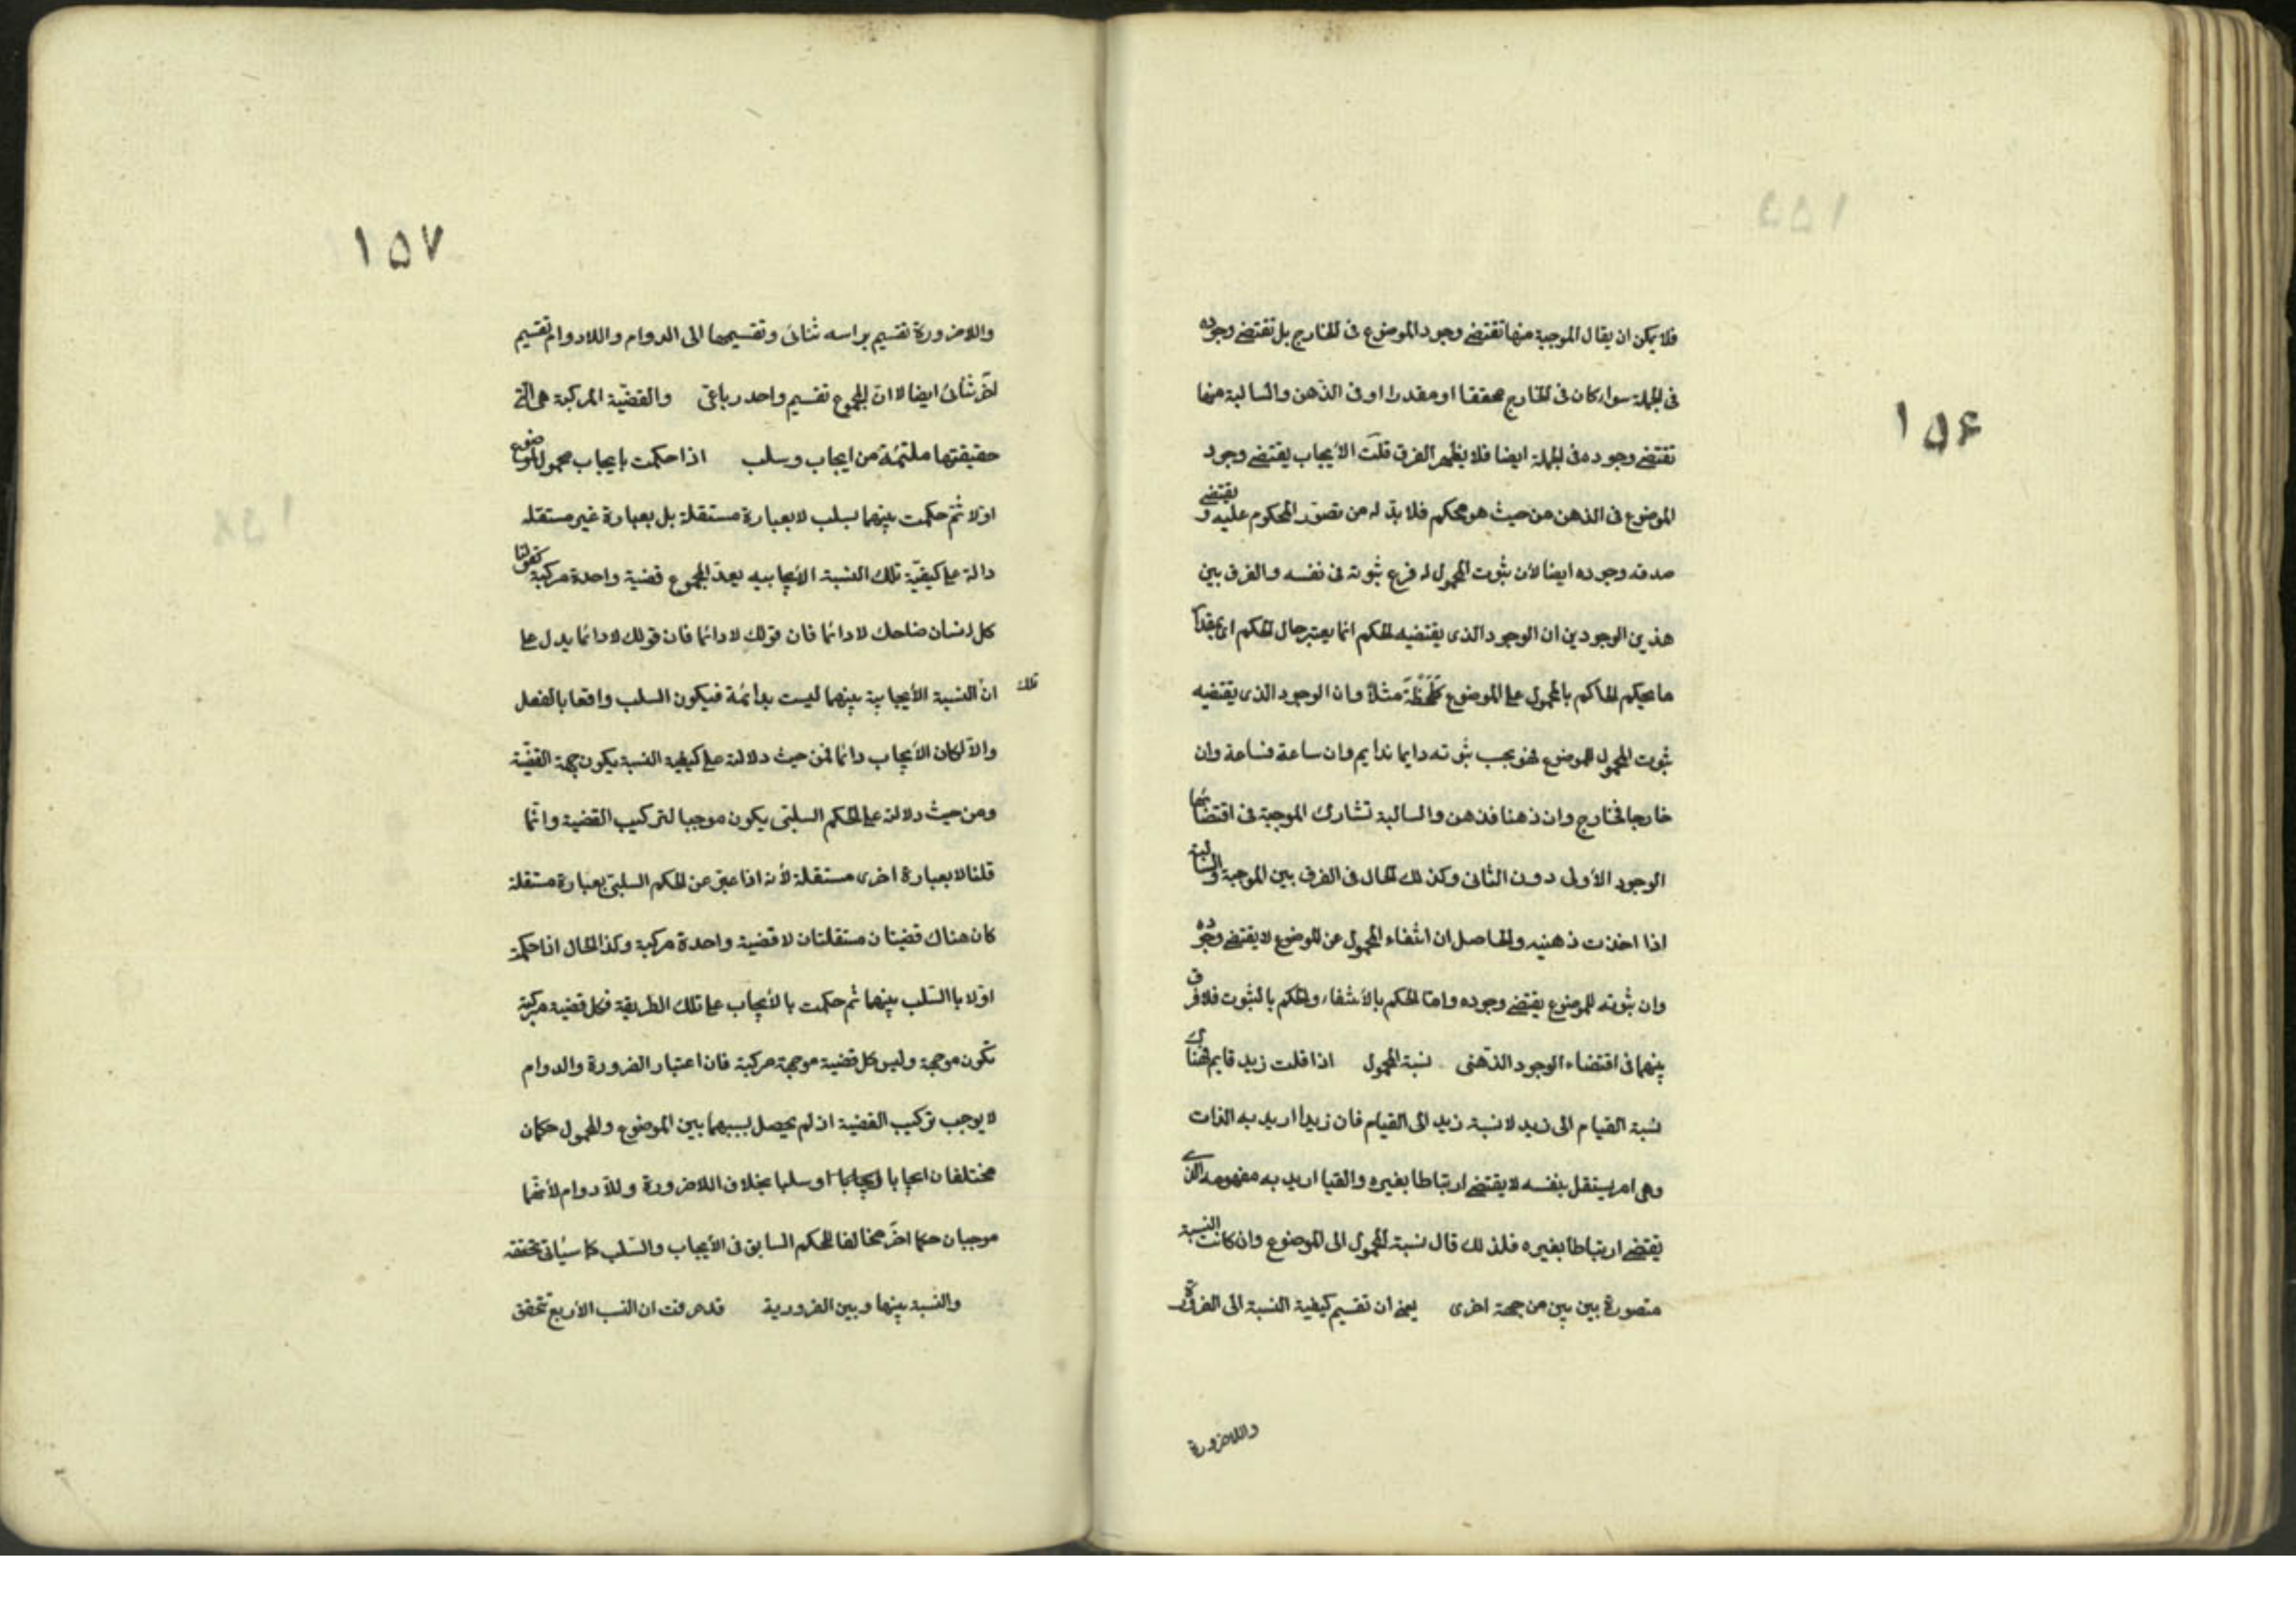 ١٥۶
فلا يمكن ان يقال الموجبة منها تقتضى وجود الموضوع فى الخارج بل تقتضى وجوده
فى الجملة سواء كان فى الخارج محققا او مقدرا او فى الذهن والسالبة منها
تقتضى وجوده فى الجملة ايضا فلا يظهر الفرق قلت الأيجاب يقتضى وجود
الموضوع فى الذهن من حيث هو حكم فلا بد له من تصور المحكوم عليه و يقتضى
صدقه وجوده ايضا لأن ثبوت المحمول له فرع ثبوته فى نفسه والفرق بين
هذين الوجودين ان الوجود الذى يقتضيه الحكم انما يعتبر حال الحكم اى بمقدار
ما يحكم الحاكم بالمحمول على الموضوع كلحظة مثلا وان الوجود الذى يقتضيه
ثبوت المحمول للموضوع فهو بحسب ثبوته دايما فدايم وان ساعة فساعة وان
خارجا فخارج وان ذهنا فذهن والسالبة تشارك الموجبة فى اقتضائها
الوجود الأول دون الثانى وكذلك الحال فى الفرق بين الموجبة والسالبة
اذا اخذت ذهنيه والحاصل ان انتفاء المحمول عن الموضوع لا يقتضى وجوده
وان ثبوته للموضوع يقتضى وجوده واما الحكم بالأنتفاء والحكم بالثبوت فلا فرق
بينهما فى اقتضاء الوجود الذهنى نسبة المحمول اذا قلت زيد قايم فهناك
نسبة القيام الى زيد لا نسبة زيد الى القيام فان زيدا اريد به الذات
وهى امر يستقل بنفسه لا يقتضى ارتباطا بغيره والقيا اريد به مفهومه الذى
يقتضى ارتباطا بغيره فلذلك قال نسبة المحمول الى الموضوع وان كانت النسبة
متصورة بين بين من جهة اخرى يعنى ان تقسيم كيفية النسبة الى الضرورة
واللاضرورة
١٥٧
واللاضرورة تقسيم براسه ثنائى وتقسيمها الى الدوام واللادوام تقسيم
آخر ثنائى ايضا لا ان المجموع تقسيم واحد رباعى والقضية المركبة هى التى
حقيقتها ملتئمة من ايجاب وسلب اذا حكمت بايجاب محمول لموضوع
اولا ثم حكمت بينهما بسلب لا بعبارة مستقلة بل بعبارة غير مستقله
دالة على كيفية تلك النسبة الأيجابيه يعد المجموع قضية واحدة مركبة كقولنا
كل انسان ضاحك لا دائما فان قولك لا دائما فان قولك لا دائما يدل على
ان تلك النسبة الأيجابية بينهما ليست بدائمة فيكون السلب واقعا بالفعل
والا لكان الأيجاب دائما فمن حيث دلالته على كيفية النسبة يكون جهة القضية
ومن حيث دلالته على الحكم السلبى يكون موجبا لتركيب القضية وانما
قلنا لا بعبارة اخرى مستقلة لأنه اذا عبر عن الحكم السلبى بعبارة مستقلة
كان هناك قضيتان مستقلتان لا قضية واحدة مركبة وكذا الحال اذا حكمت
اولا باالسلب بينهما ثم حكمت بالأيجاب على تلك الطريقة فكل قضية مركبة
تكون موجهة وليس كل قضية موجهة مركبة فان اعتبار الضرورة والدوام
لا يوجب تركيب القضية اذ لم يحصل بسببهما بين الموضوع والمحمول حكمان
مختلفان ايجابا ايجابا او سلبا بخلاف اللاضرورة واللادوام لأنهما
موجبان حكما اخر مخالفا للحكم السابق فى الأيجاب والسلب كما سيأتى تحققه
والنسبة بينها وبين الضرورية قد عرفت ان النسب الأربع تتحقق